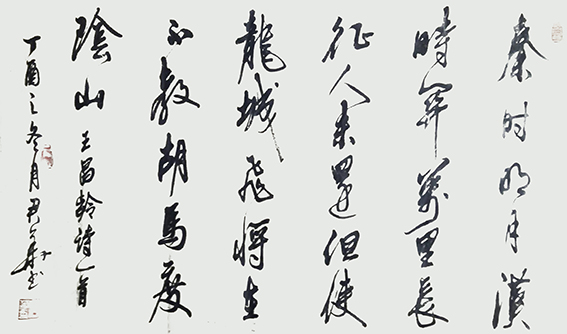 秦时明月漢
時關萬里長
征人未還但使
龍城飛將在
不教胡馬度
陰山 王昌齡詩一首
丁酉之冬月尹书